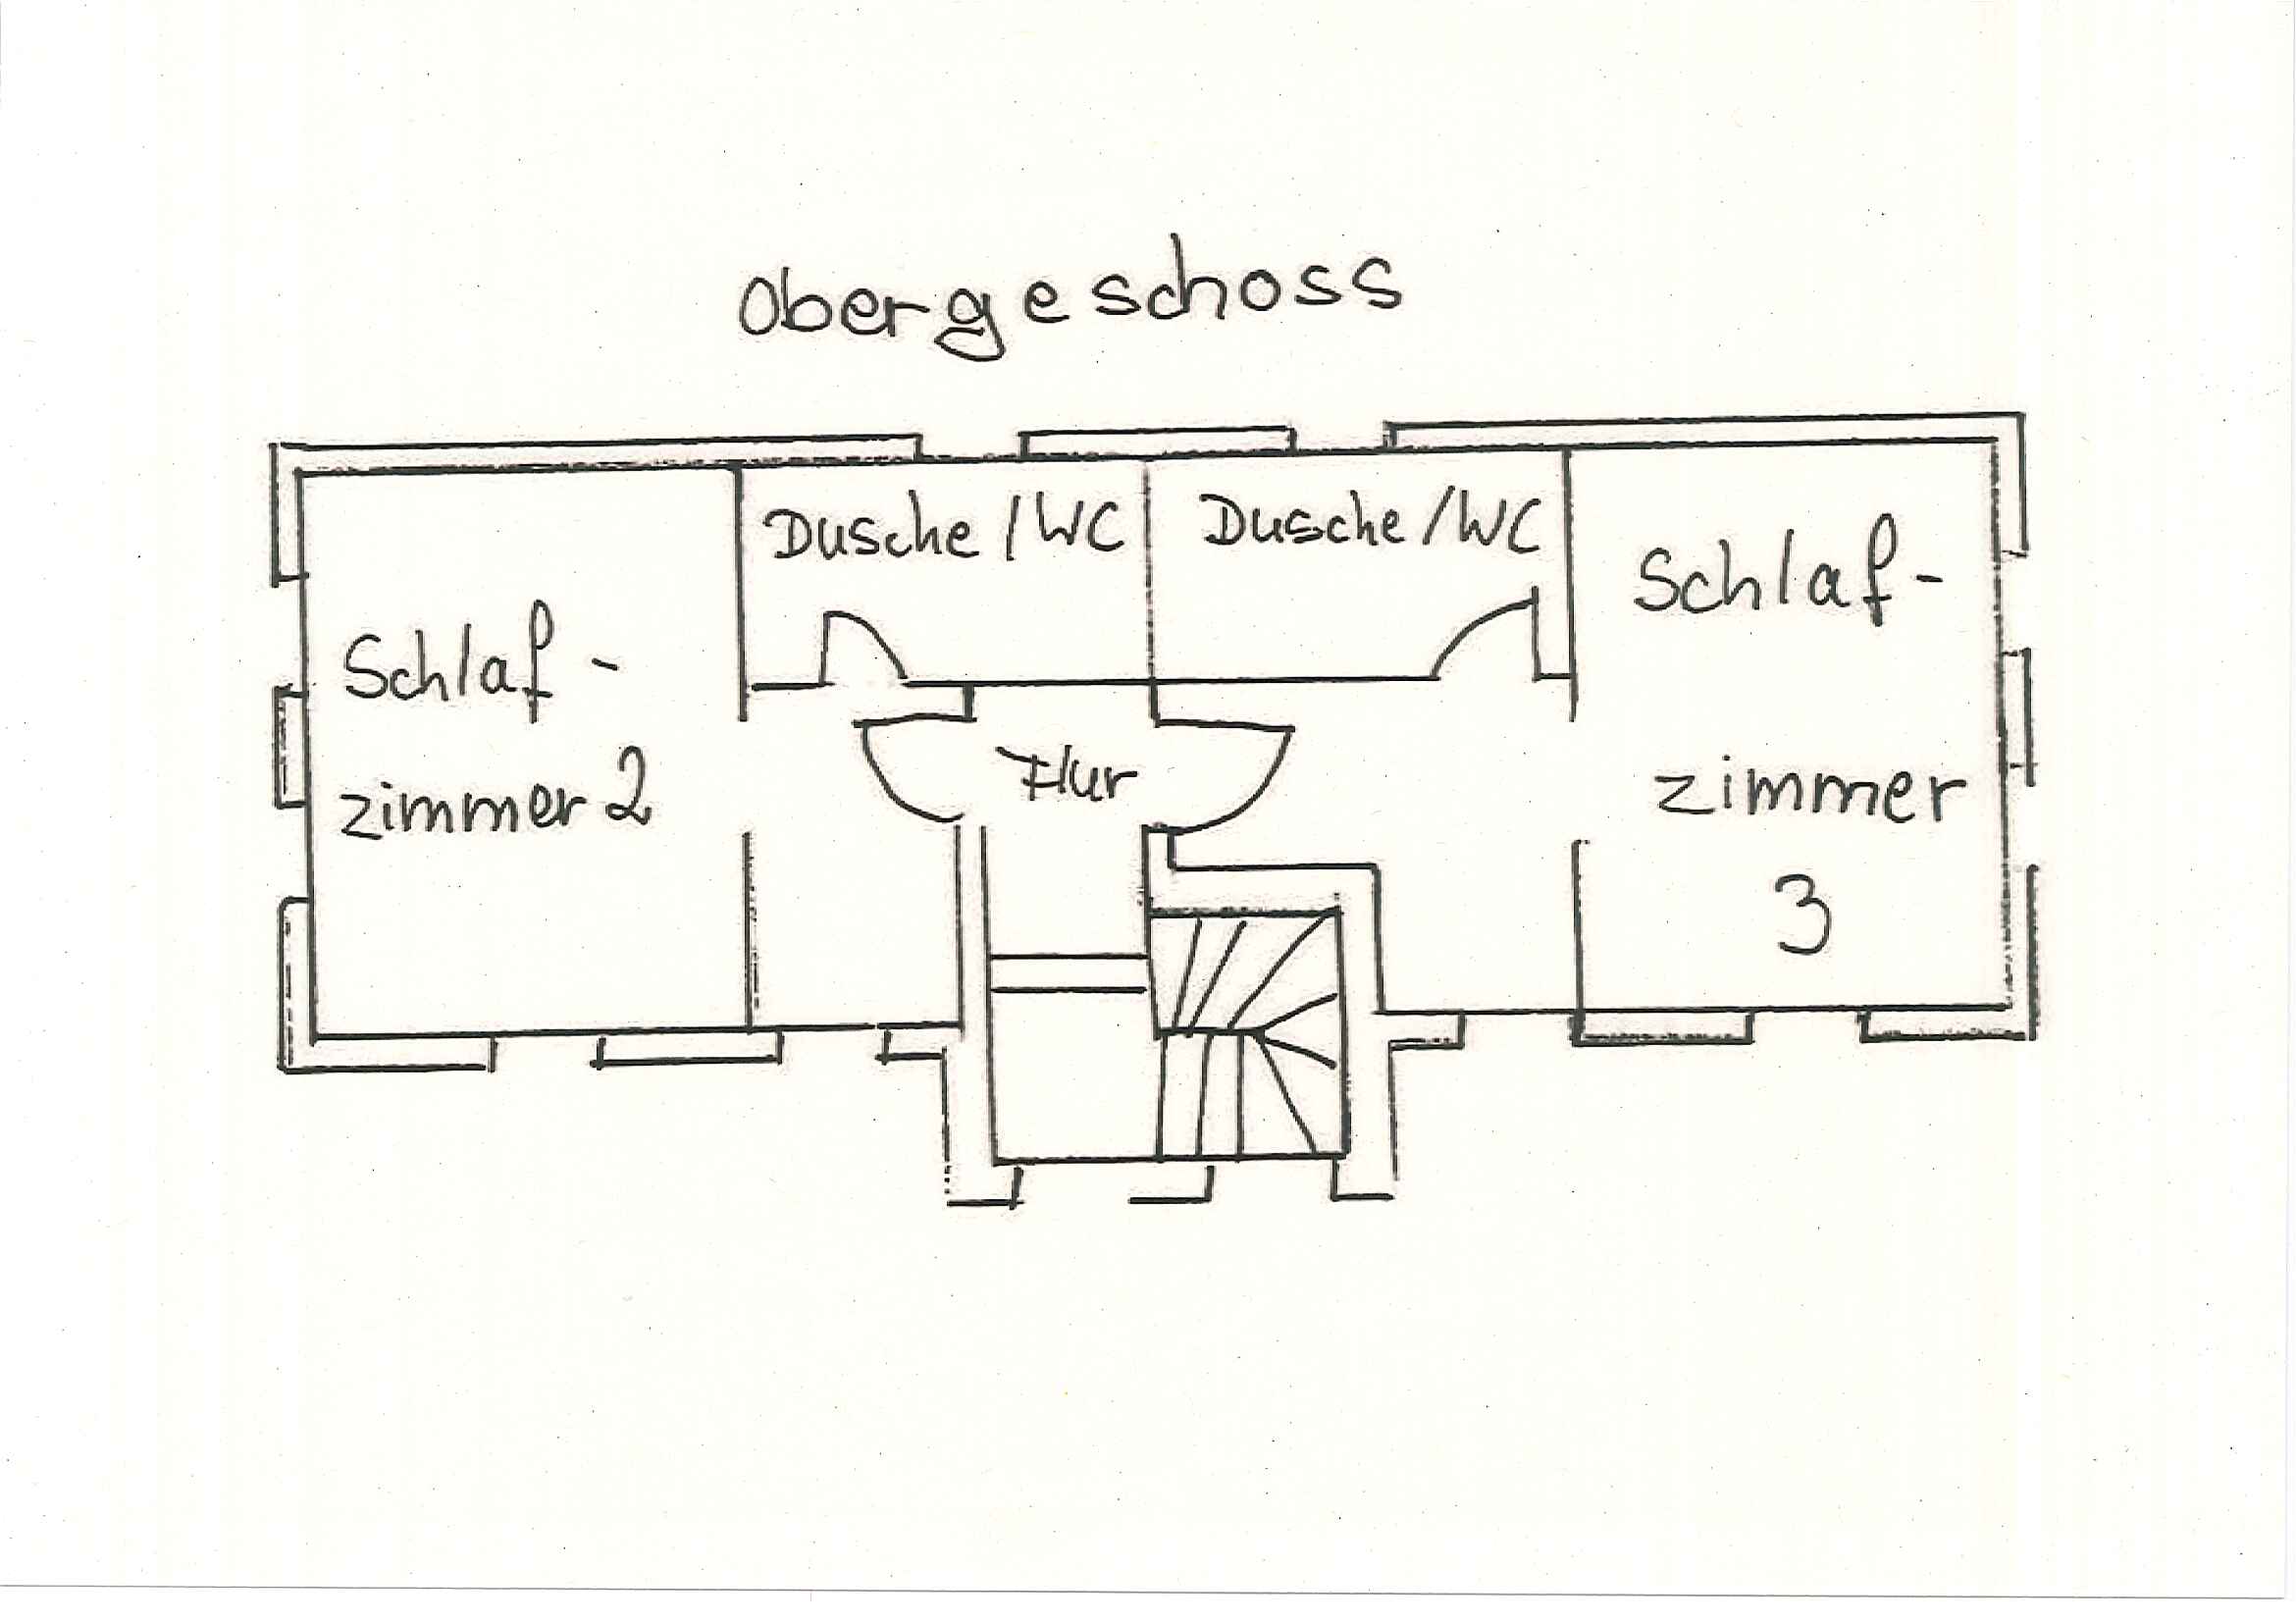 Obergeschoss
Dusche/WC
Dusche/WC
Schlaf-
zimmer 2
Flur
Schlaf-
zimmer
3